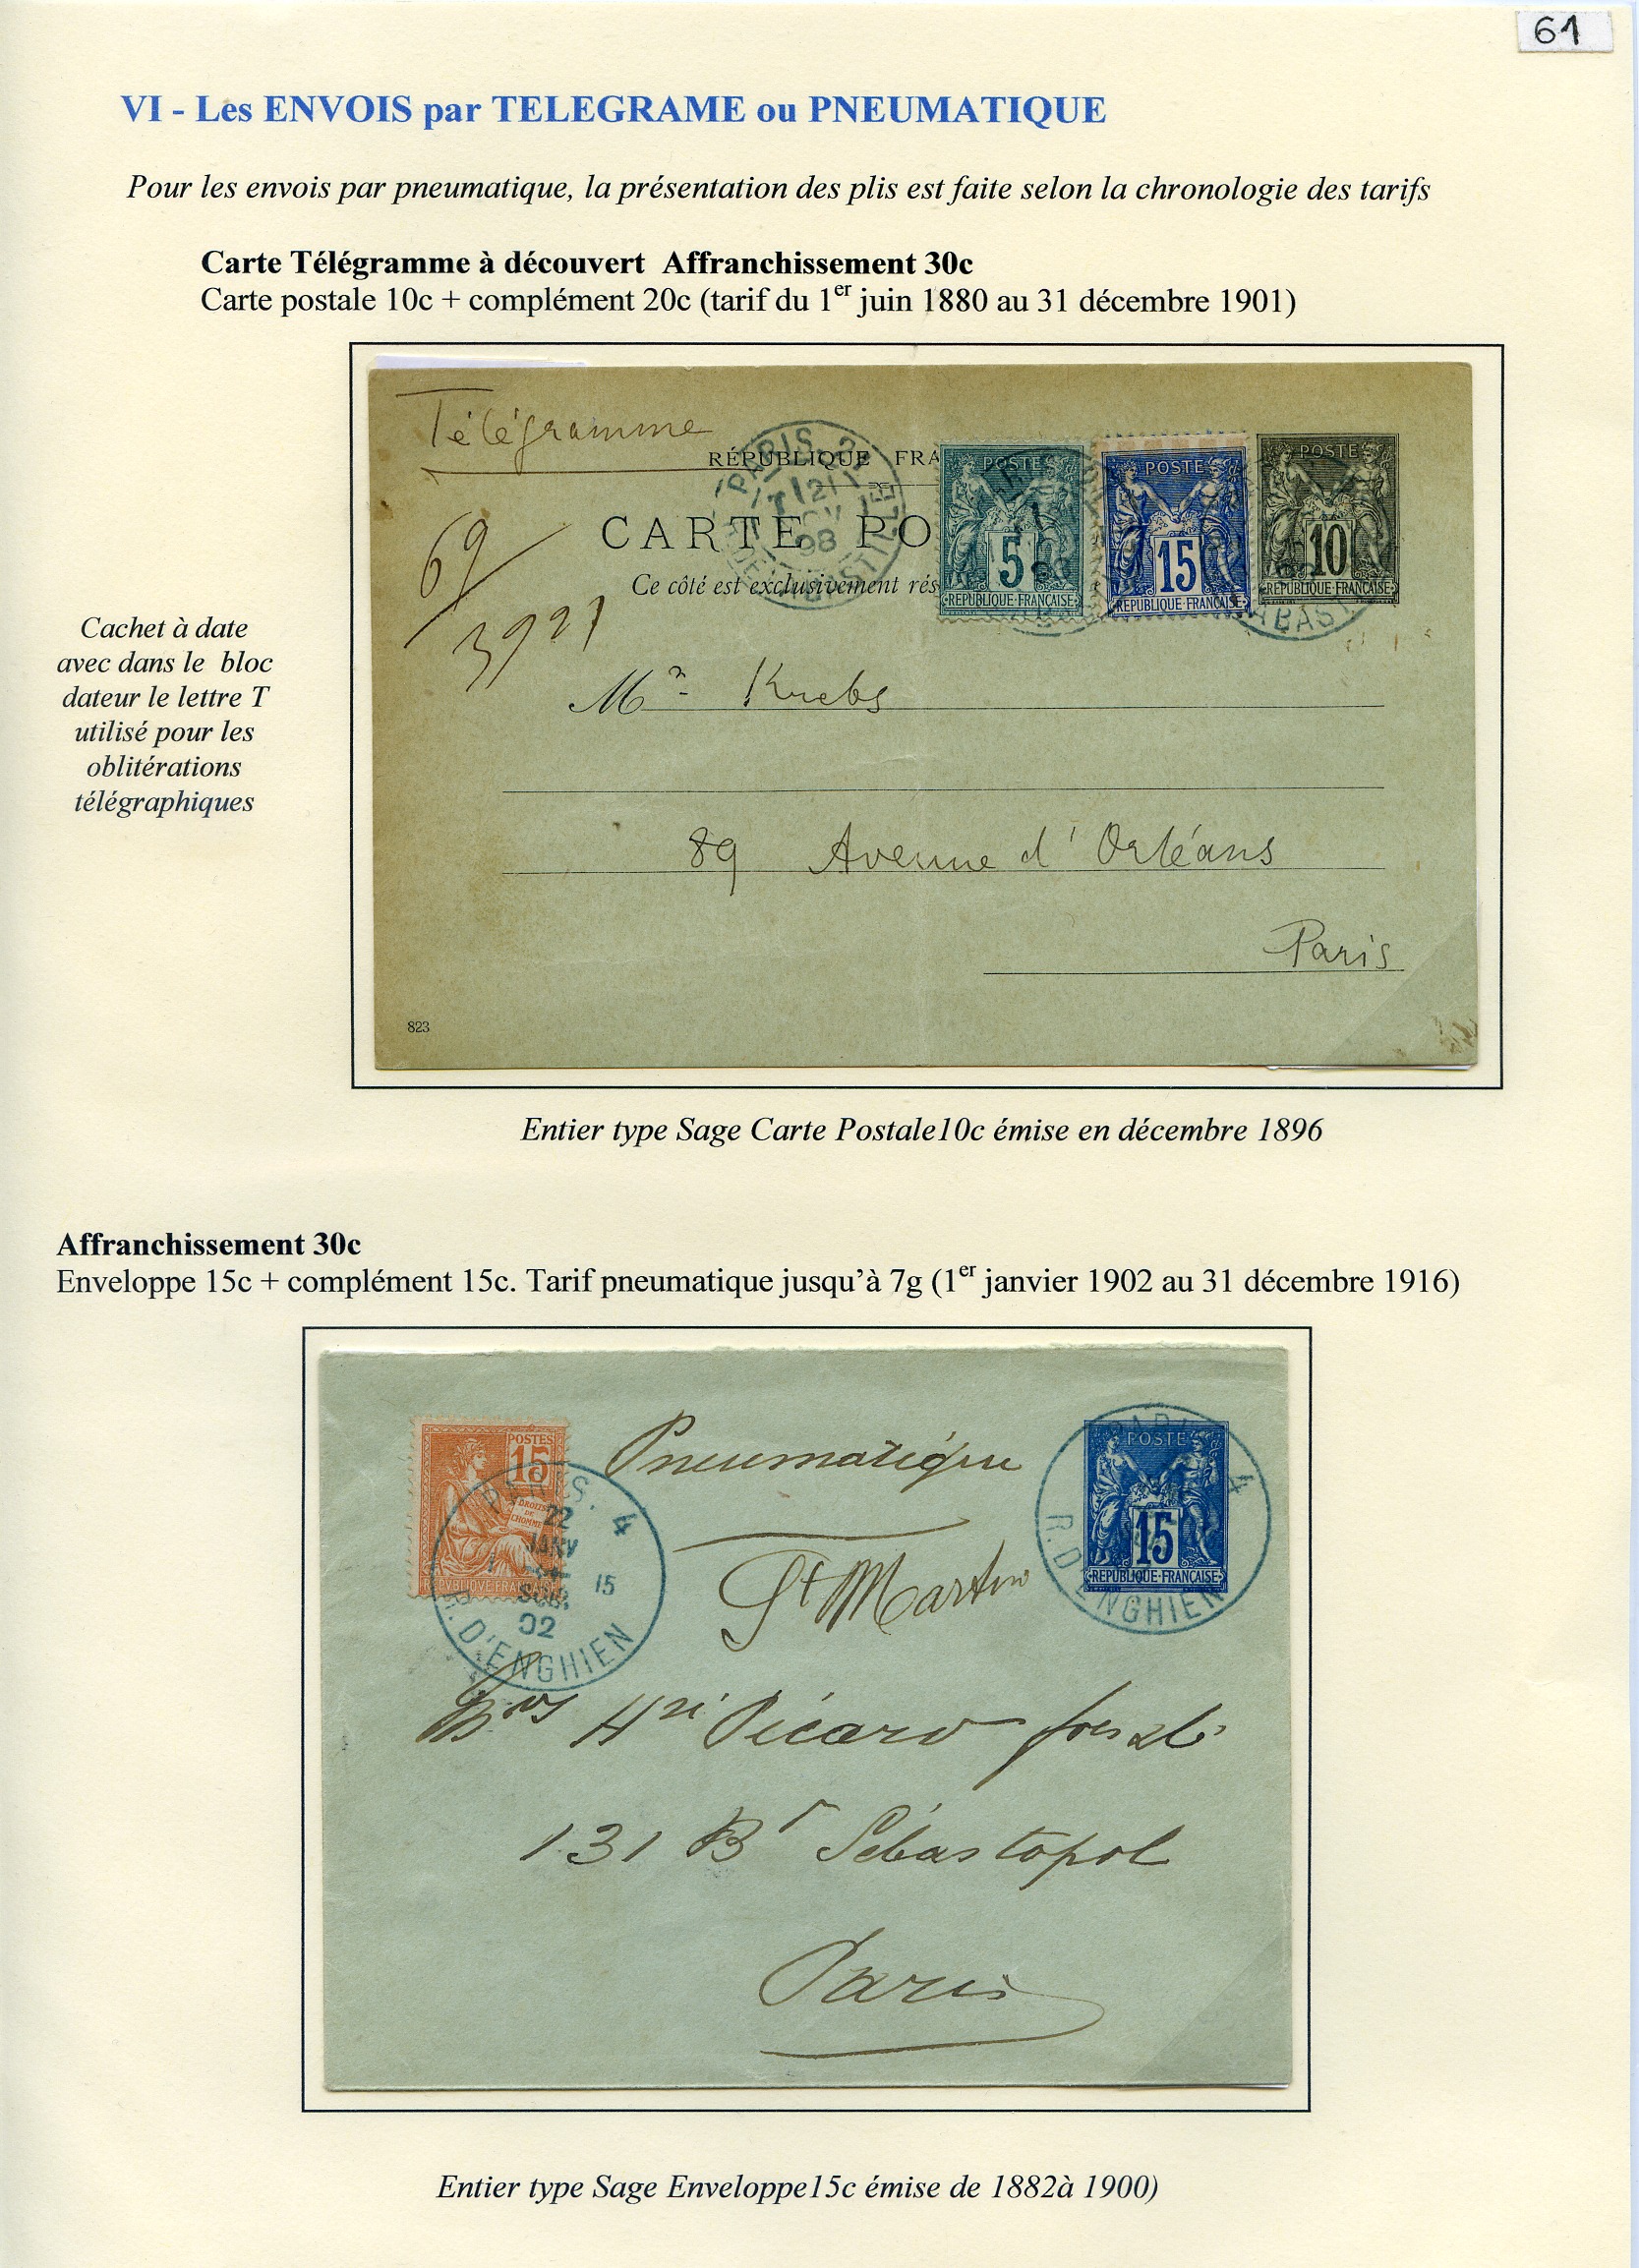 61
VI - Les ENVOIS par TELEGRAME ou PNEUMATIQUE
Pour les envois par pneumatique, la présentation des plis est faite selon la chronologie des tarifs
Carte Télégramme à découvert Affranchissement 30c
Carte postale 10c + complément 20c (tarif du 1er juin 1880 au 31 décembre 1901)
Télégramme
RÉPUBLIQUE FRA
CARTE PO
Ce côté est exclusivement rés
PARIS
98
BASTILLE
POSTE
5
REPUBLIQUE FRANÇAISE
POSTE
15
REPUBLIQUE FRANÇAISE
POSTE
10
REPUBLIQUE FRANÇAISE
69
3927
Mr Krebs
89 Avenue d'Orléans
Paris
823
Cachet à date
avec dans le bloc
dateur le lettre T
utilisé pour les
oblitérations
télégraphiques
Entier type Sage Carte Postale10c émise en décembre 1896
Affranchissement 30c
Enveloppe 15c + complément 15c. Tarif pneumatique jusqu'à 7g (1er janvier 1902 au 31 décembre 1916)
POSTES
15
DROITS
DE
L'HOMME
REPVBLIQVE FRANÇAISE
PARIS. 4
22
JANV
15
02
R. D'ENGHIEN
Pneumatique
St Martin
PARIS 4
R. D'ENGHIEN
POSTE
15
REPUBLIQUE FRANÇAISE
Hri Picard
131 Bd Sébastopol
Paris
Entier type Sage Enveloppe15c émise de 1882à 1900)